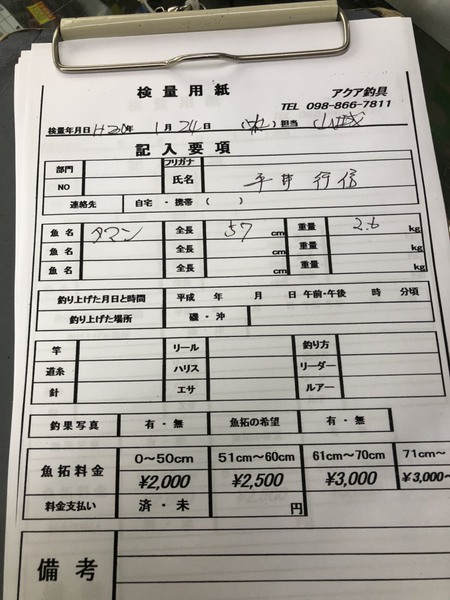 検量用紙 アクア釣具
TEL 098-866-7811
検量年月日 H30年 1月24日 担当 山城
記入要項
部門 フリガナ
NO 氏名 平井 行信
連絡先 自宅・携帯 ( )
魚名 タマン 全長 57 cm 重量 2.6 kg
魚名 全長 cm 重量 kg
魚名 全長 cm 重量 kg
釣り上げた月日と時間 平成 年 月 日 午前・午後 時 分頃
釣り上げた場所 磯・沖
竿 リール 釣り方
道糸 ハリス リーダー
針 エサ ルアー
釣果写真 有・無 魚拓の希望 有・無
魚拓料金 0～50cm 51cm～60cm 61cm～70cm 71cm～
¥2,000 ¥2,500 ¥3,000 ¥3,000～
料金支払い 済・未 円
備考